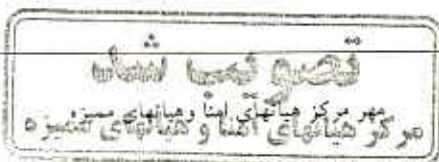 تصویب شد
مهر مرکز هیأتهای امنا وهیأتهای ممیزه
مرکز هیاتهای امنا و هیاتهای ممیزه